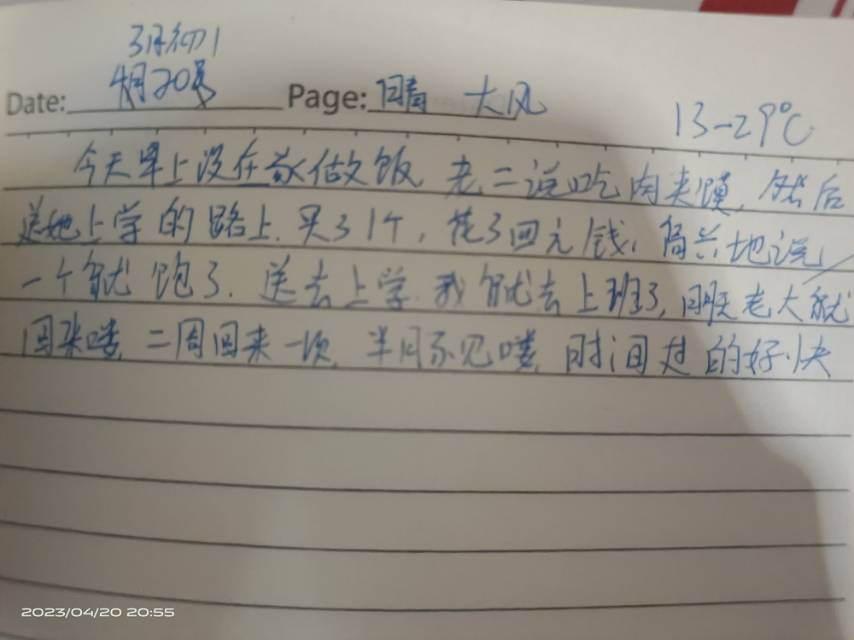 3月初1
Date: 4月20号 Page: 晴 大风
13-29℃
今天早上没在家做饭 老二说吃肉夹馍, 然后
送她上学的路上, 买了1个, 花了四元钱, 高兴地说
一个就饱了. 送去上学, 我就去上班了, 明天老大就
回来喽, 二周回来一次, 半月不见喽, 时间过的好快
2023/04/20 20:55